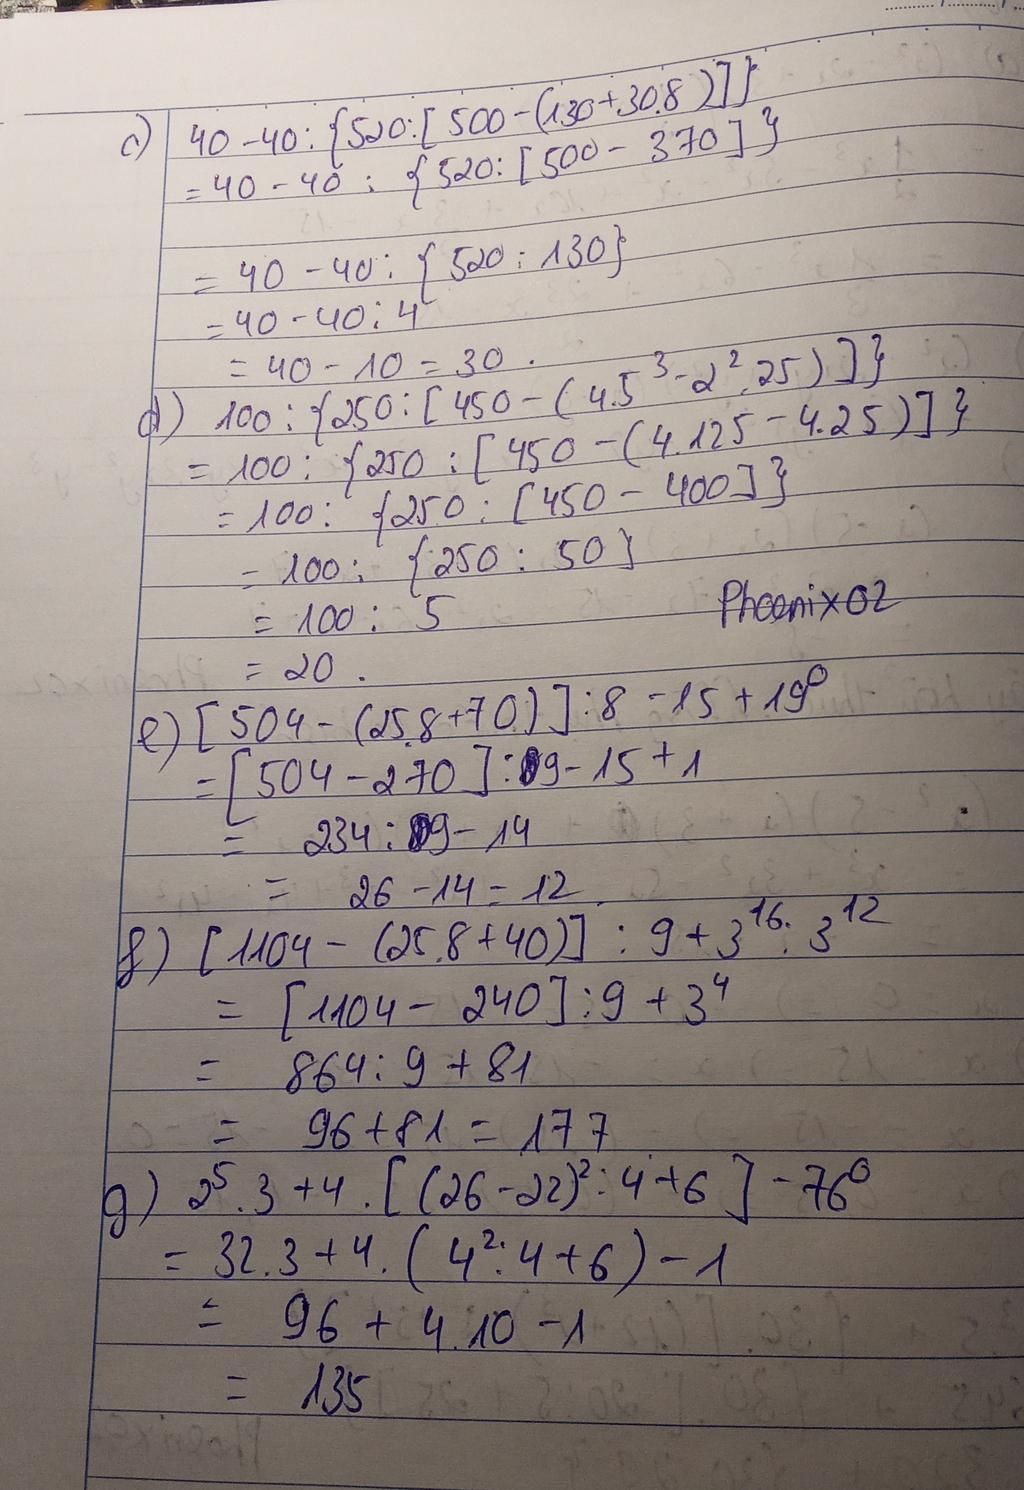 c) 40 - 40 : {520 : [500 - (130 + 30.8)]}
= 40 - 40 : {520 : [500 - 370]}
= 40 - 40 : {520 : 130}
= 40 - 40 : 4
= 40 - 10 = 30 .
d) 100 : {250 : [450 - (4.5³ - 2².25)]}
= 100 : {250 : [450 - (4.125 - 4.25)]}
= 100 : {250 : [450 - 400]}
= 100 : {250 : 50}
= 100 : 5
Phoenix02
= 20 .
e) [504 - (25.8 + 70)] : 8 - 15 + 19⁰
= [504 - 270] : 9 - 15 + 1
= 234 : 9 - 14
= 26 - 14 = 12 .
f) [1104 - (25.8 + 40)] : 9 + 3¹⁶ : 3¹²
= [1104 - 240] : 9 + 3⁴
= 864 : 9 + 81
= 96 + 81 = 177
g) 2⁵.3 + 4.[(26 - 22)² : 4 + 6] - 76⁰
= 32.3 + 4.(4² : 4 + 6) - 1
= 96 + 4.10 - 1
= 135